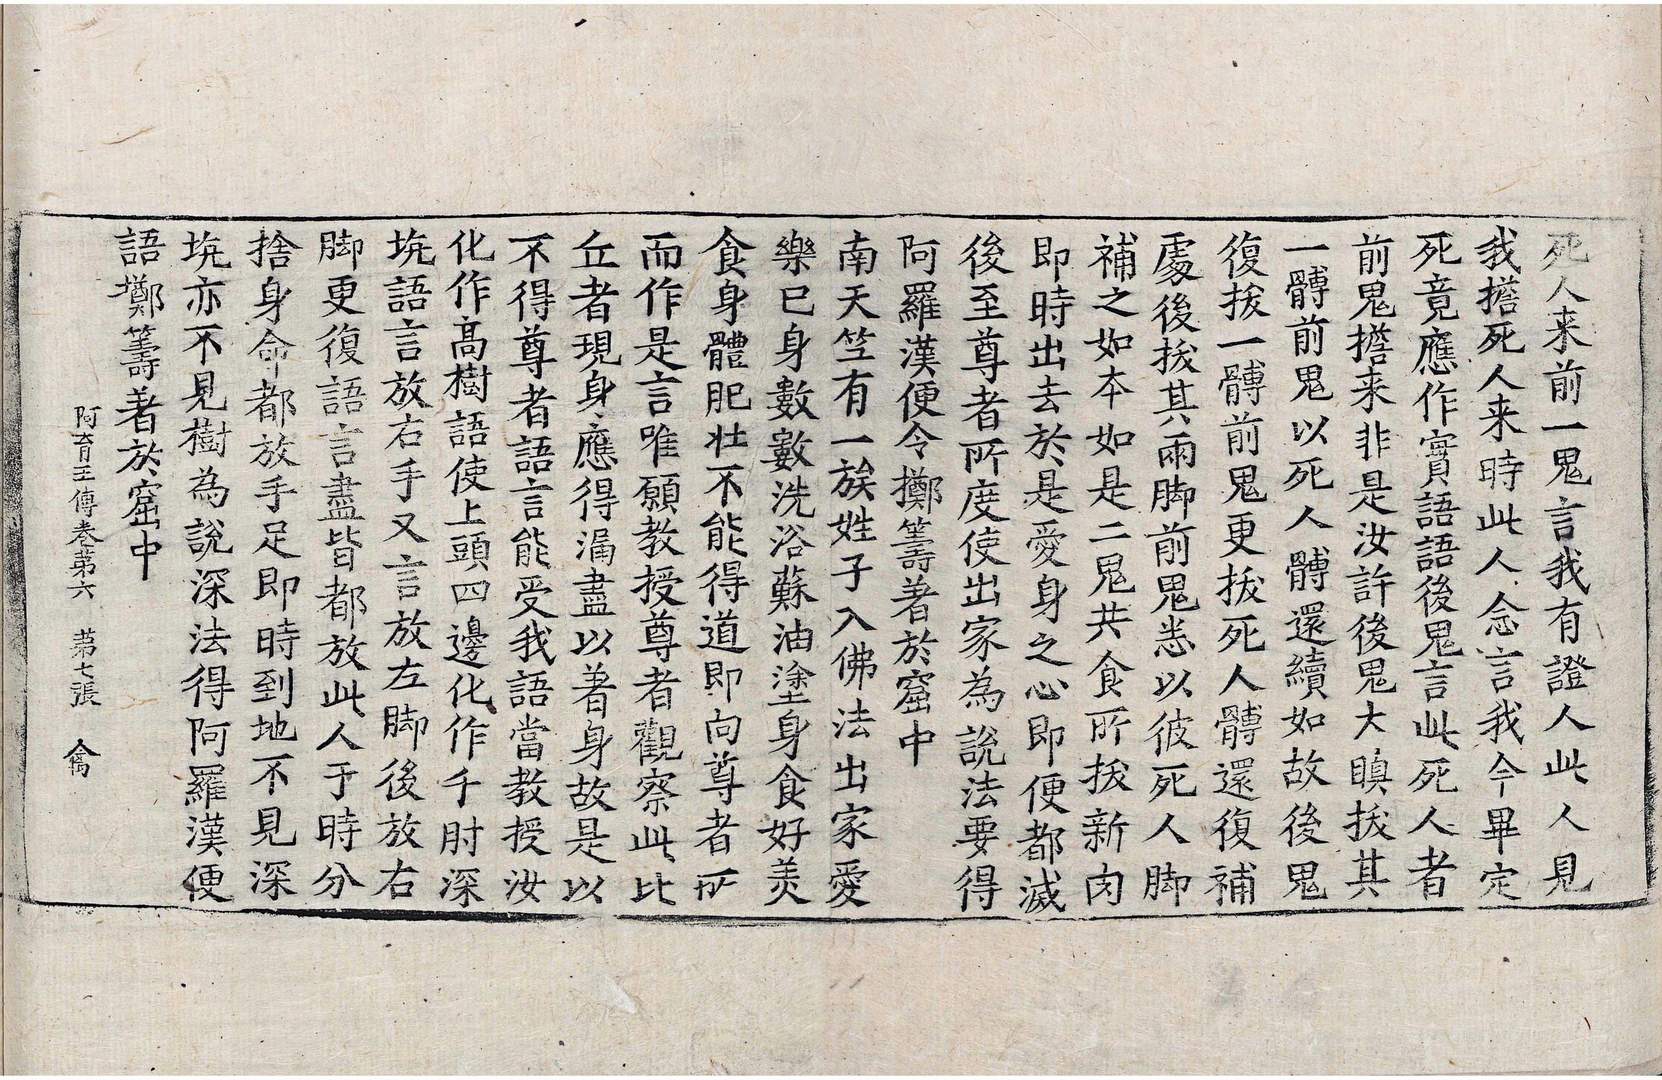 死人来前一鬼言我有證人此人見
我擔死人来時此人念言我今畢定
死竟應作實語語後鬼言此死人者
前鬼擔来非是汝許後鬼大瞋拔其
一髆前鬼以死人髆還續如故後鬼
復拔一髆前鬼更拔死人髆還復補
處後拔其兩脚前鬼悉以彼死人脚
補之如本如是二鬼共食所拔新肉
即時出去於是愛身之心即便都滅
後至尊者所度使出家為說法要得
阿羅漢便令擲籌著於窟中
南天竺有一族姓子入佛法出家愛
樂已身數數洗浴蘇油塗身食好美
食身體肥壯不能得道即向尊者所
而作是言唯願教授尊者觀察此比
丘者現身應得漏盡以著身故是以
不得尊者語言能受我語當教授汝
化作高樹語使上頭四邊化作千肘深
坑語言放右手又言放左脚後放右
脚更復語言盡皆都放此人于時分
捨身命都放手足即時到地不見深
坑亦不見樹為說深法得阿羅漢便
語擲籌著於窟中
阿育王傳卷第六 第七張 禽